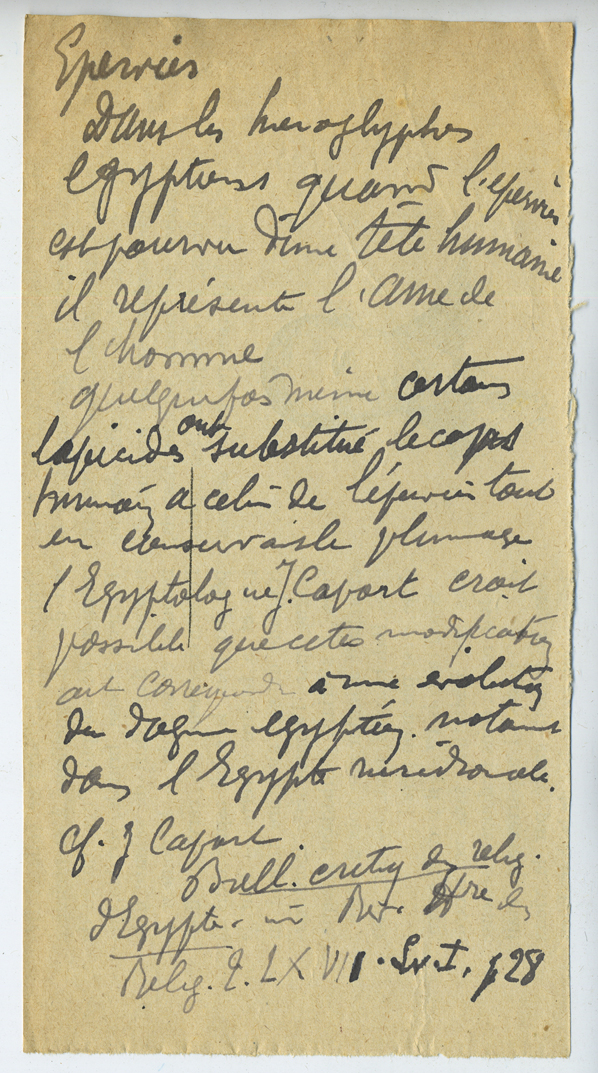 Epervier
Dans les hieroglyphes
Egyptiens quand l'epervier
est pourvu d'une tête humaine
il représente l'âme de
l'homme
quelquefois même certains
lapicides ont substitué le corps
humain a celui de l'épervier tout
en conservant le plumage
l'Egyptologue J. Capart croit
possible que cette modification
ait correspondu à une évolution
du dogme egyptien notamt
dans l'Egypte méridionale.
cf. J Capart.
Bull. critiq des relig.
d'Egypte. in Rev. Hre des
Relig. T. LXVII. p 28